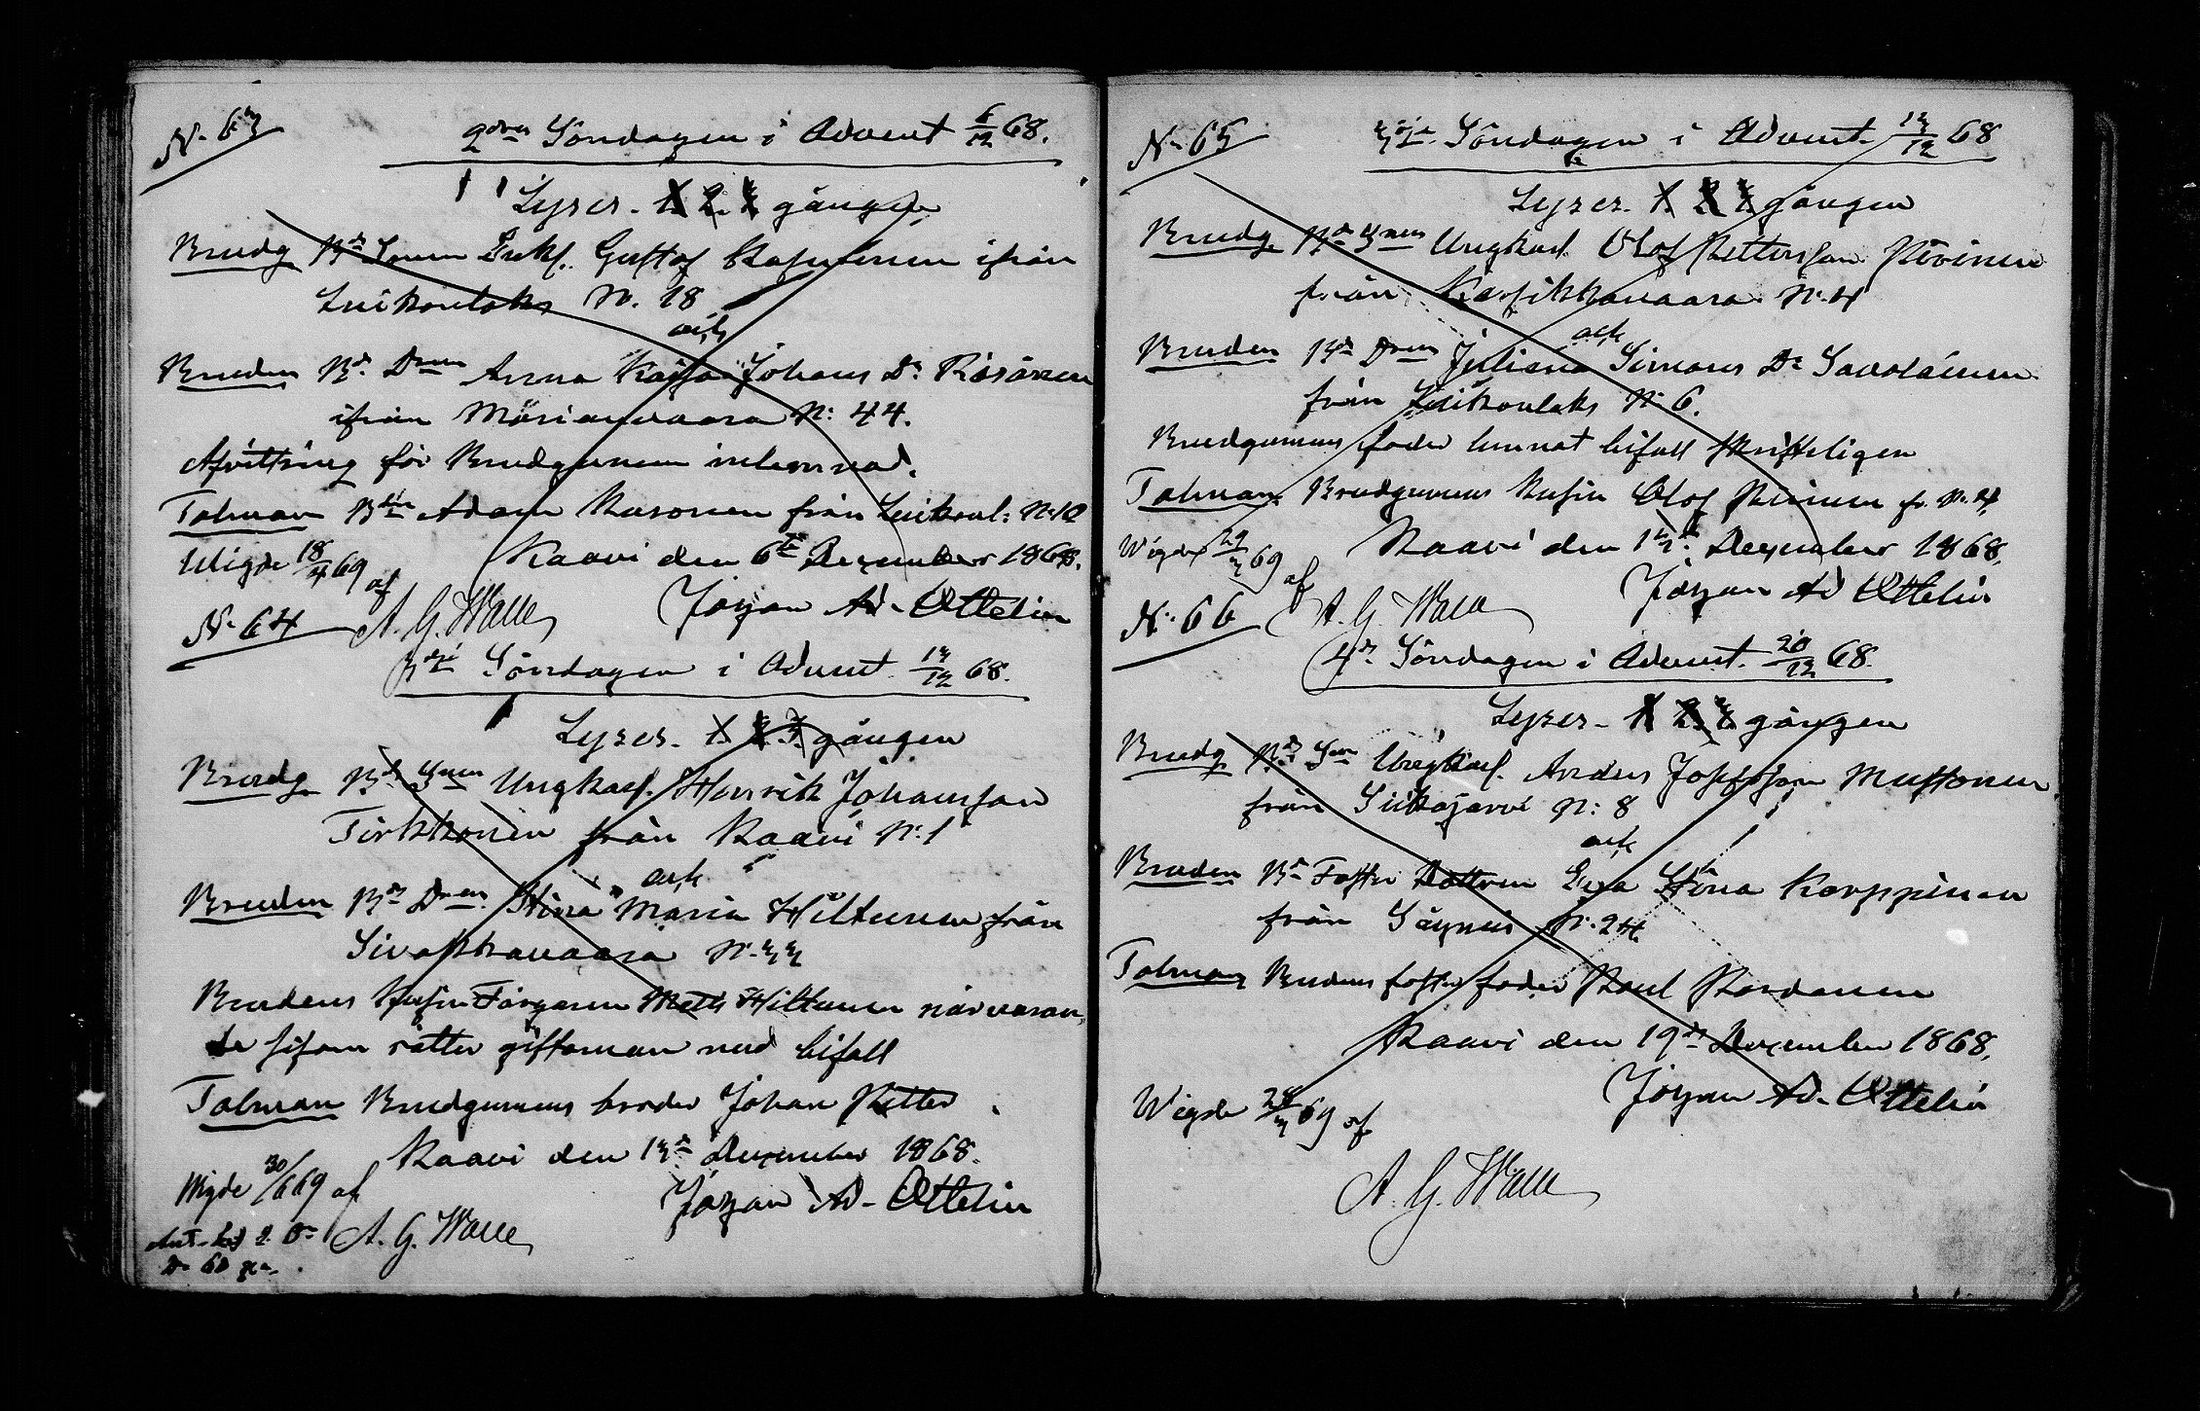 N. 63
2dra Söndagen i Advent 6/12 68.
Lyses. 1. 2. 3. gången
Brudg Bde Sonen Enkl. Gustaf Rasimmen ifrån
Luikonlaks N. 18
och
Bruden Bde Dren Anna Kajsa Johans Dr Räsänen
ifrån Märianvaara N: 44.
Afvittring för Brudgumen inlemnad.
Talman Bde Adam Kasonen från Luikonl: N:12
Wigde 18/4 69 af
Kaavi den 6te December 1868.
A. G. Walle
Jöran Ad. Ottelin
N. 64
3dje Söndagen i Advent 13/12 68.
Lyses. 1. 2. 3. gången
Brudg Bde Snen Ungkarl. Henrik Johansson
Tirkkonen från Kaavi N:1
och
Bruden Bde Dren Stina Maria Hiltunen från
Sivakkavaara N. 33
Brudens Kusin Färgaren Mats Hiltunen närvaran-
de såsom rätter giftoman med bifall
Talman Brudgumens broder Johan Petter
Kaavi den 13de December 1868.
Wigde 30/6 69 af
Jöran Ad. Ottelin
A. G. Walle
N. 65
3dje Söndagen i Advent 13/12 68
Lyses. 1. 2. 3. gången
Brudg. Bde Snen Ungkarl Olof Pettersson Piironen
från Karsikkavaara N. 4
och
Bruden Bde Dren Juliana Simons Dr Savolainen
från Luikonlaks N. 6.
Brudgumens fader lemnat bifall skriftligen
Talman Brudgumens Kusin Olof Piironen fr. N. 4
Wigde 29/3 69 af
Kaavi den 13de December 1868.
Jöran Ad Ottelin
A. G. Walle
N. 66
4de Söndagen i Advent. 20/12 68.
Lyses. 1. 2. 3. gången
Brudg Bde Sn Ungkarl. Anders Josefsson Mustonen
från Siikajärvi N: 8
och
Bruden Bde Foster Dottren Eva Stina Karppinen
från Säyneis N. 24.
Talman Brudens foster fader Paul Pardanen
Kaavi den 19de December 1868.
Jöran Ad. Ottelin
Wigde 28/3 69 af
A. G. Walle